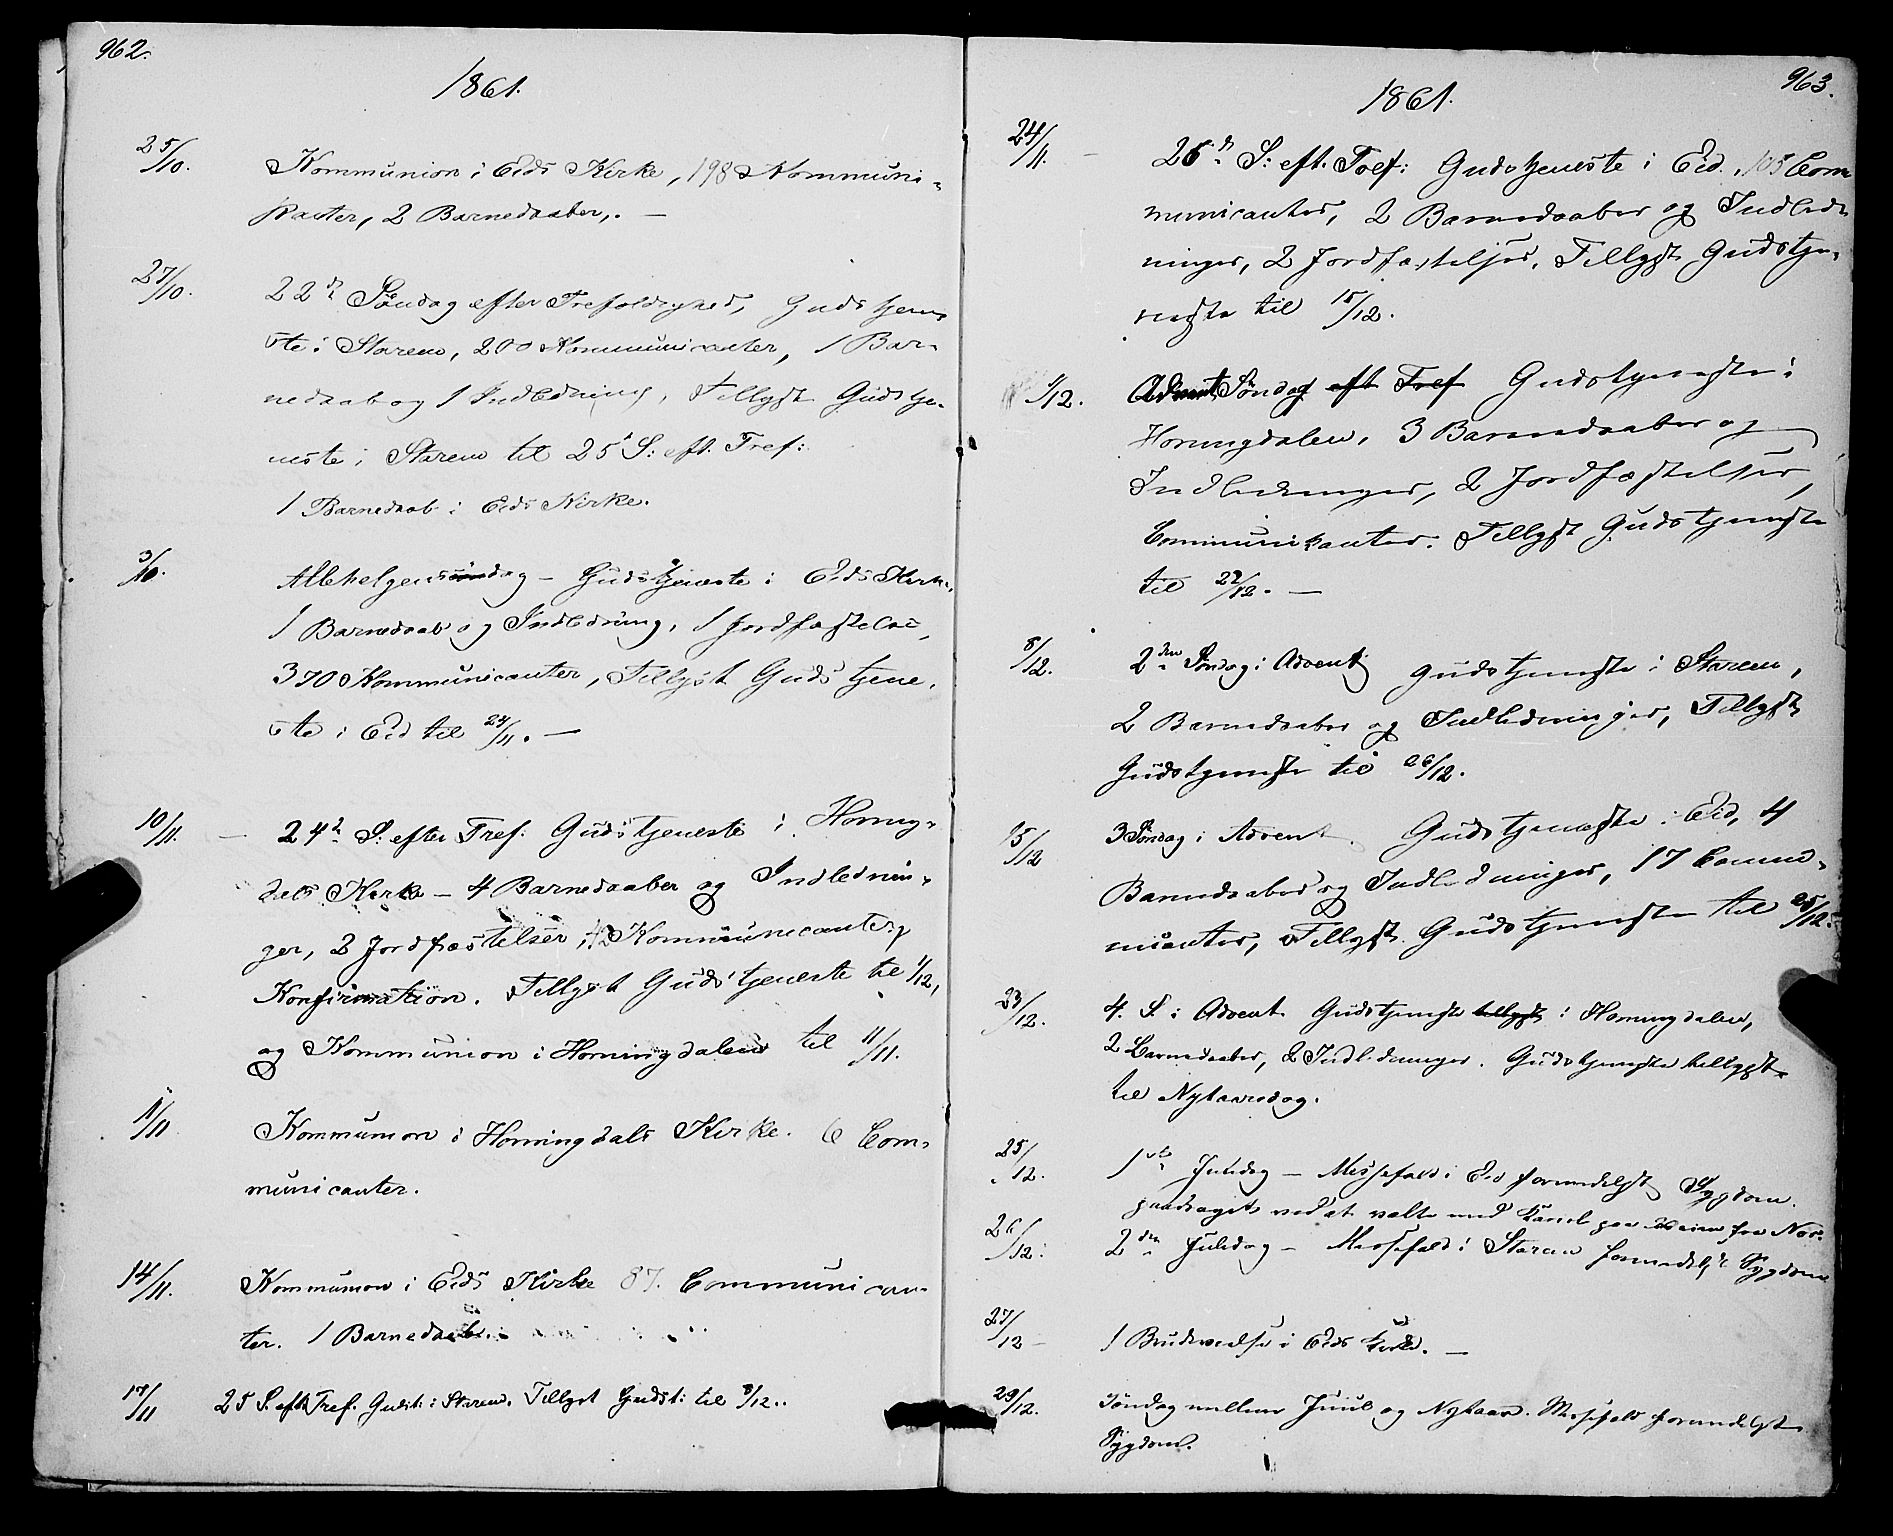 962.
1861.
25/10. Kommunion i Eids Kirke, 198 Kommuni-
kanter, 2 Barnedaaber. —
27/10. 22de Søndag efter Trefoldighed, Gudstjene-
ste i Starem, 200 Kommunicanter, 1 Bar-
nedaab og 1 Indledning, Tillyst Gudstje-
neste i Starem til 25d S: eft. Tref:
1 Barnedaab i Eids Kirke.
3/10. Allehelgensdag – Gudstjeneste i Eids Kirke,
1 Barnedaab og Indledning, 1 Jordfæstelse,
370 Kommunicanter, Tillyst Gudstjene-
ste i Eid til 24/11. —
10/11. — 24de S. efter Tref: Gudstjeneste i Horning-
dals Kirke – 4 Barnedaaber og Indlednin-
ger, 2 Jordfæstelser, 42 Kommunicanter,
Konfirmation. Tillyst Gudstjeneste til 1/12,
og Kommunion i Horningdalen til 11/11.
11/11 Kommunion i Horningdals Kirke. 6 Com-
municanter.
14/11. Kommunion i Eids Kirke 87. Communican-
ter. 1 Barnedaab.
17/11 25 S. eft. Tref. Gudst: i Starem. Tillyst Gudst: til 8/12..
963.
1861.
24/11. — 26de S: eft. Tref: Gudstjeneste i Eid, 105 Com-
municanter, 2 Barnedaaber og Indled-
ninger, 2 Jordfæstelser, Tillyst Gudstje-
neste til 15/12.
1/12. Advent Søndag eft Tref Gudstjeneste i
Horningdalen, 3 Barnedaaber og
Indledninger, 2 Jordfæstelser,
Communikanter. Tillyst Gudstjeneste
til 22/12. —
8/12. 2den Søndag i Advent Gudstjeneste i Starem,
2 Barnedaaber og Indledninger, Tillyst
Gudstjeneste til 26/12.
15/12 3 Søndag i Advent. Gudstjeneste i Eid, 4
Barnedaaber og Indledninger, 17 Commu-
nicanter, Tillyst Gudstjeneste til 25/12.
23/12. 4. S. i Advent Gudstjeneste tillyst i Horningdalen,
2 Barnedaaber, 2 Indledninger. Gudstjeneste tillyst
til Nytaarsdag.
25/12. 1ste Juledag – Messefald i Eid formedelst Sygdom.
paadraget ved at vælte med Kariol paa Veien fra Nor.
26/12. 2den Juledag – Messefald i Starem formedelst Sygdom
27/12 – 1 Brudevielse i Eids Kirke. —
29/12. Søndag mellem Juul og Nytaar. Messefald formedelst
Sygdom.